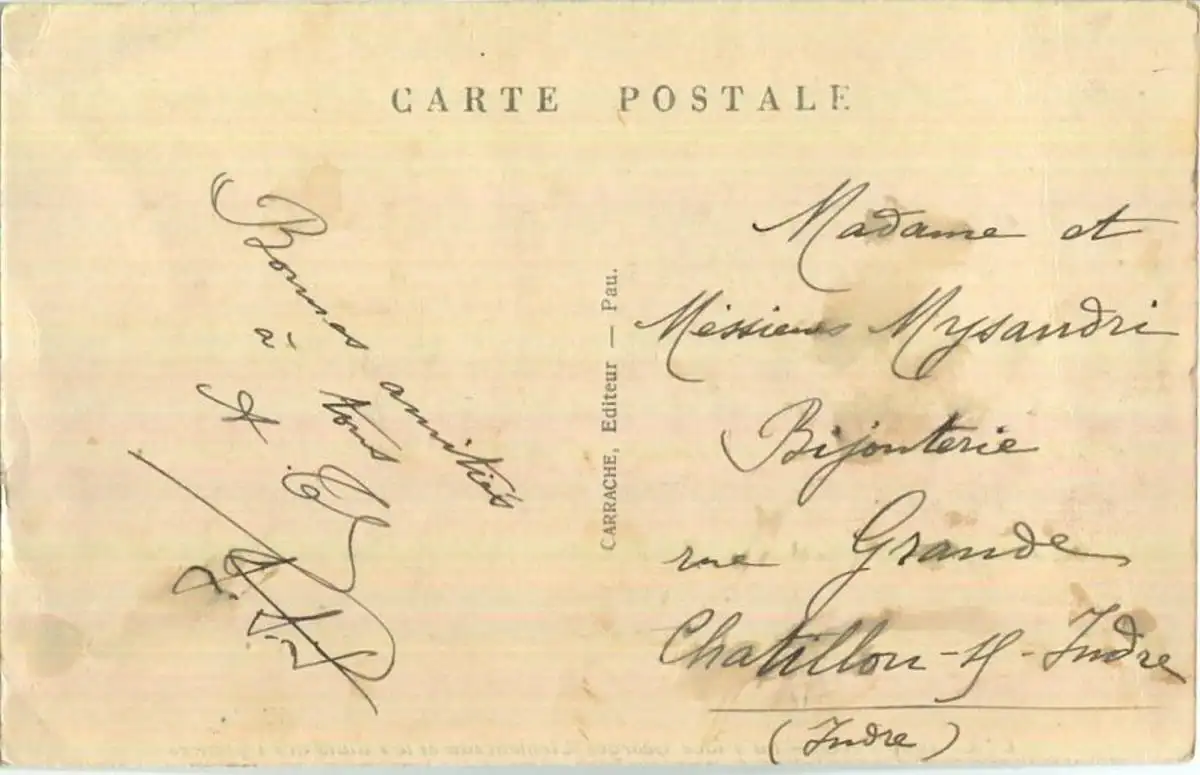 CARTE POSTALE
Bonnes amitiés
à tous
CARRACHE, Editeur — Pau.
Madame et
Méssieurs Mysandri
Bijouterie
rue Grande
Chatillon-s/-Indre
(Indre)